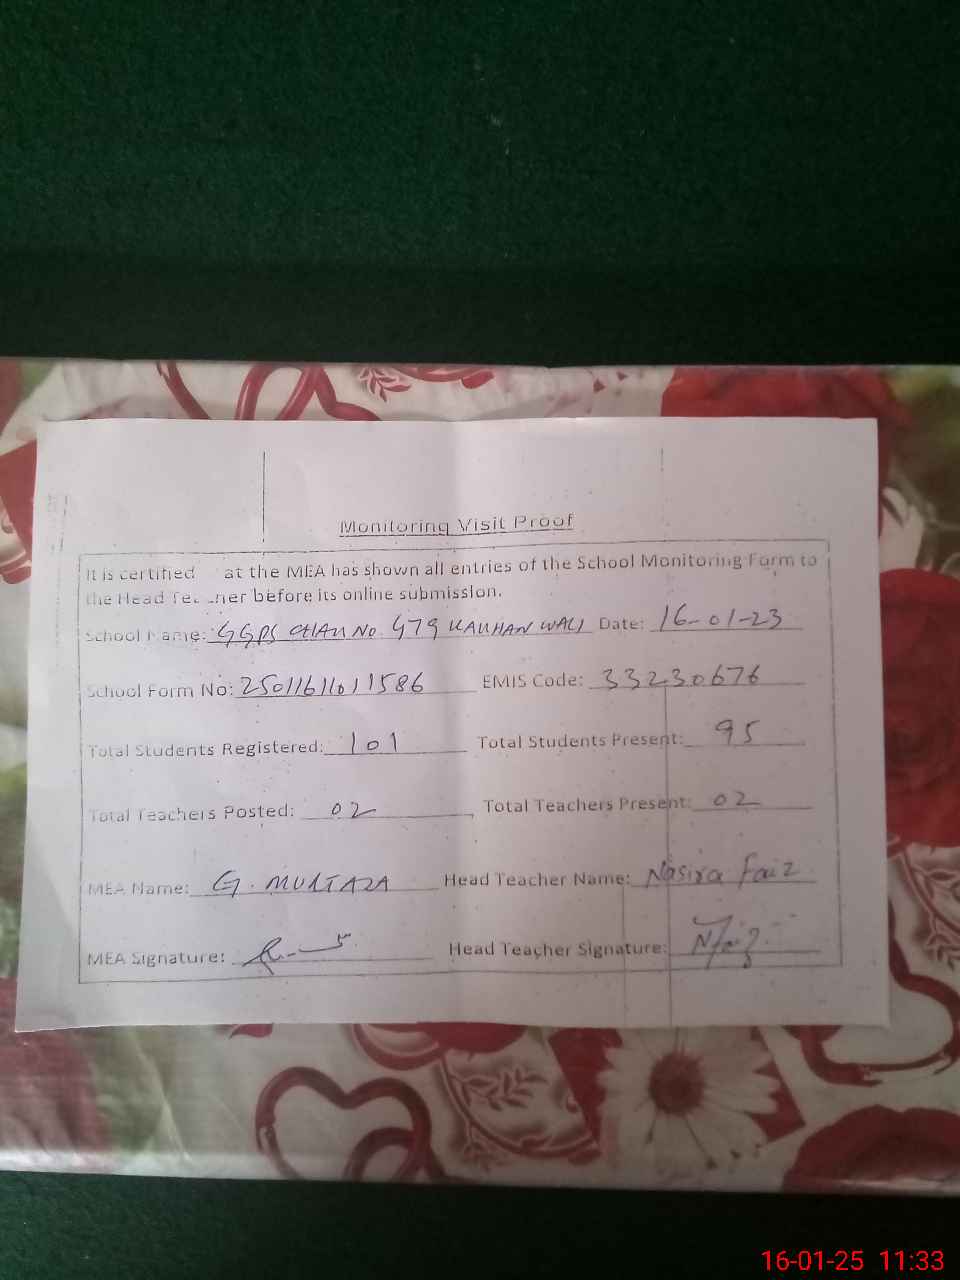 Monitoring Visit Proof
It is certified at the MEA has shown all entries of the School Monitoring Form to
the Head Te ner before its online submission.
School Name: GGPS CHAK No. 479 KAUHAN WALI Date: 16-01-23
School Form No: 25011611011586 EMIS Code: 33230676
Total Students Registered: 101 Total Students Present: 95
Total Teachers Posted: 02 Total Teachers Present: 02
MEA Name: G. MURTAZA Head Teacher Name: Nasira Faiz
MEA Signature: Head Teacher Signature: NFaiz
16-01-25 11:33